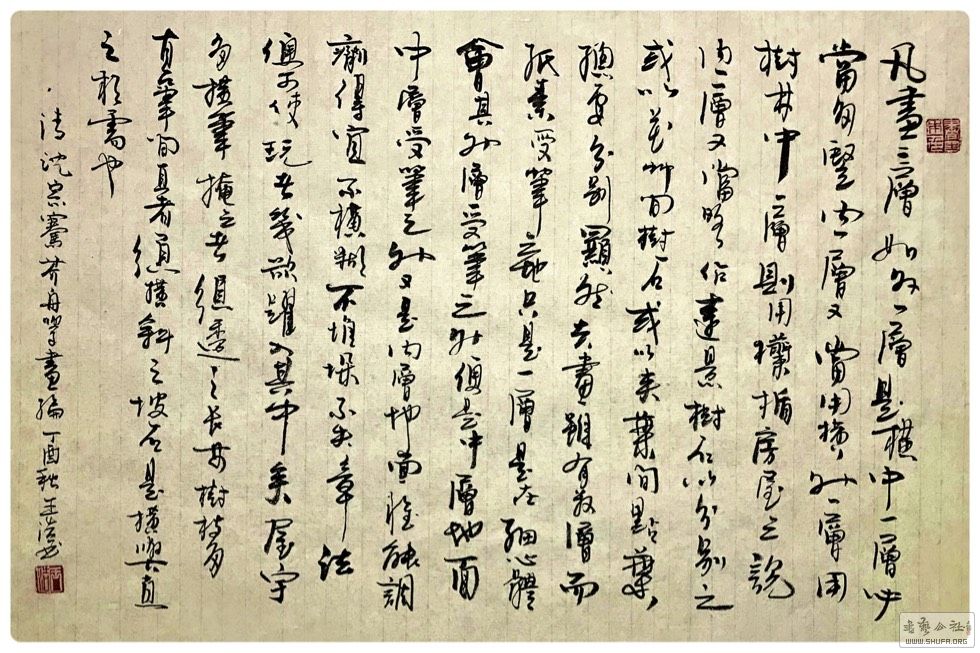 凡畫三層如外一層是横中一層必
當多豎內一層又當用横外一層用
樹林中一層則用欄楯房屋之說
內一層又當略作遠景樹石以分別之
或以花艸間樹石或以夾葉間點葉
總要分別顯然夫畫雖有數層而
紙素受筆之地只是一層是在細心體
會其外層受筆之外便是中層地面
中層受筆之外又是內層地面惟能調
劑得宜不模糊不堆垛不失章法
便可使玩者幾欲躍入其中矣屋宇
多横筆掩之者須透之長樹枝多
直筆間直者須横斜之坡石是横與直
之相需也
清沈宗騫芥舟學畫編丁酉秋王書
WWW.SHUFA.ORG